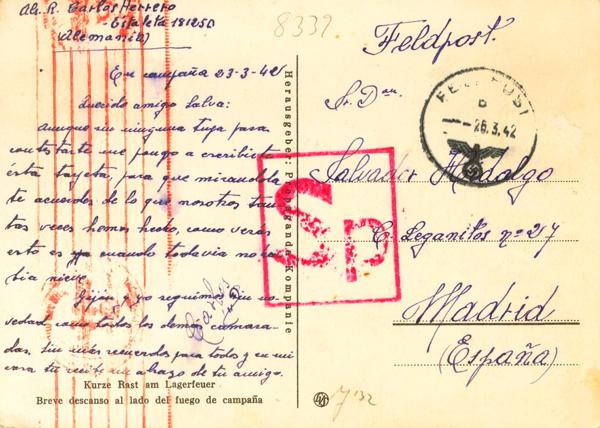 Alf. R. Carlos Herrero
- Estafeta 18125D
(Alemania)
En campaña 23-3-42
Querido amigo Salva:
Aunque sin ninguna tuya para
contestarte me pongo a escribirte
ésta tarjeta, para que mirándola
te acuerdes de lo que nosotros tan-
tas veces hemos hecho, como verás
esto es ya cuando todavia no ha-
bia nieve.
Gijón y yo seguimos sin no-
vedad como todos los demás camara-
das, sin más recuerdos para todos y en mi
cara tu recibe un abrazo de tu amigo.
Carlos
Kurze Rast am Lagerfeuer
Breve descanso al lado del fuego de campaña
Herausgeber: Propaganda-Kompanie
8332
Feldpost.
FELDPOST
b
- 26.3.42
Sr. Dn.
Salvador Hidalgo
C/ Leganitos nº 27
Madrid
(España)
Sp